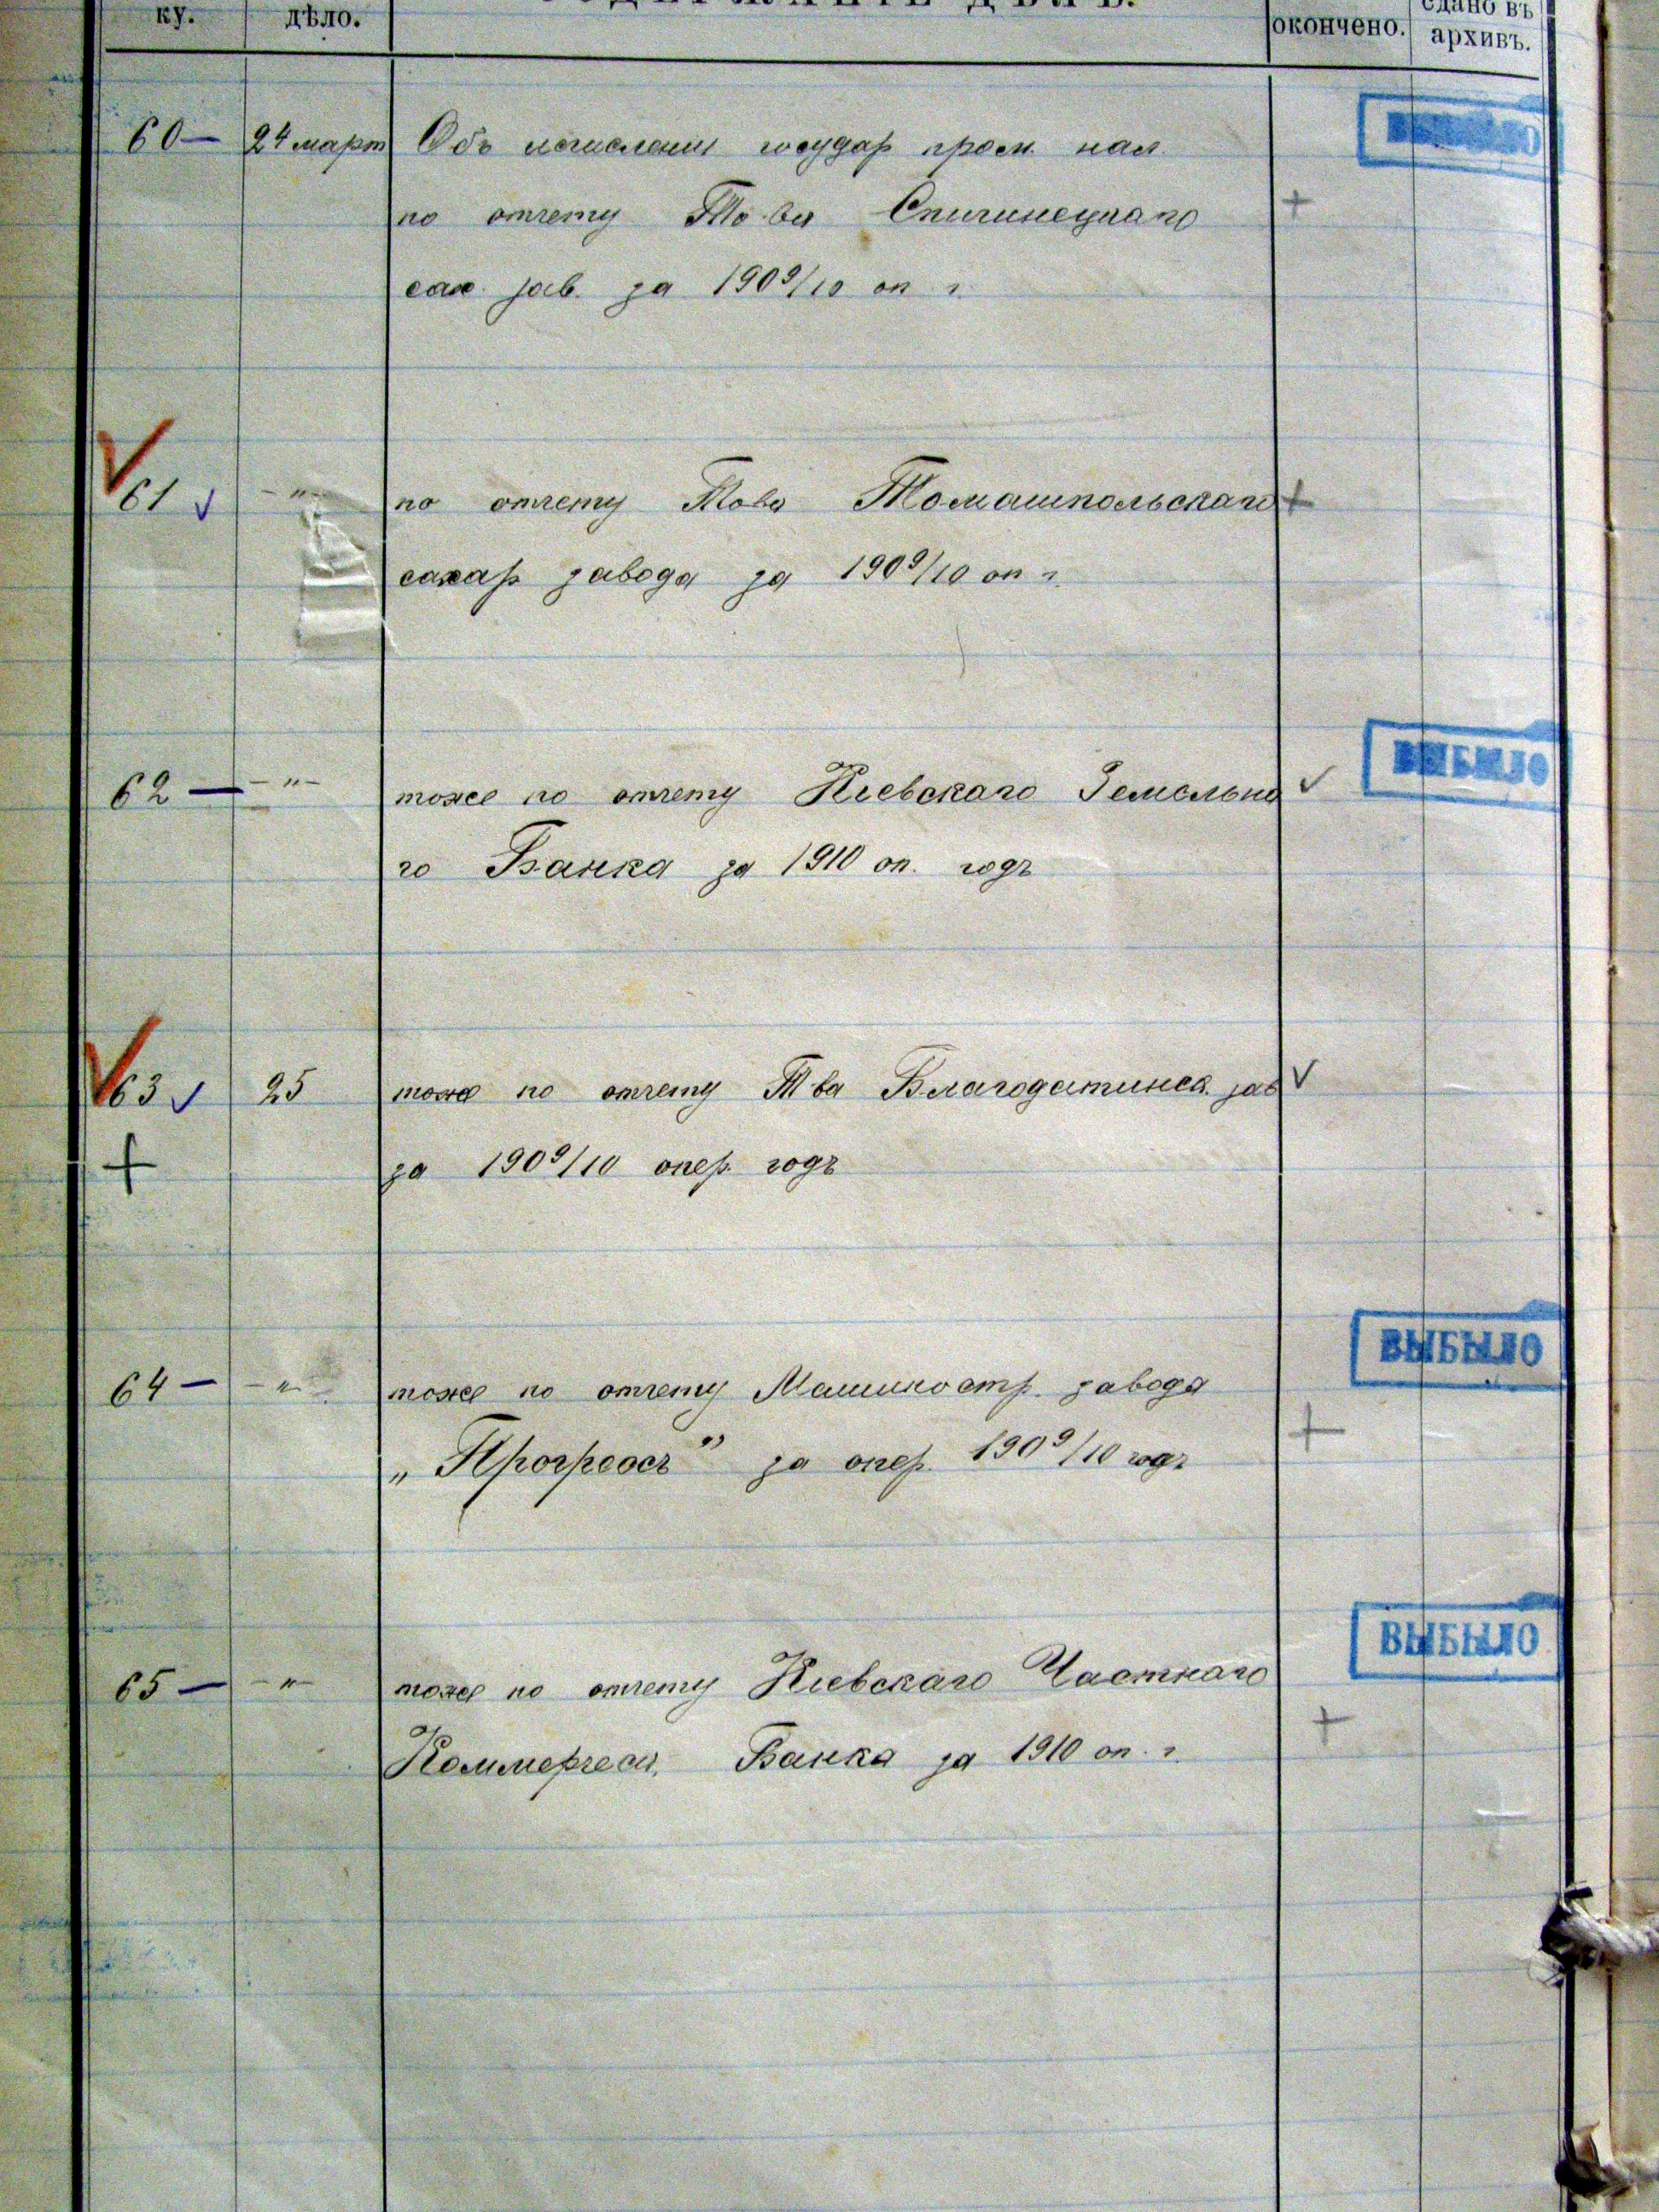 ку. дѣло. СОДЕРЖАНІЕ ДѢЛЪ. окончено. сдано въ
архивъ.
ВЫБЫЛО
60— 24 март Объ исчислении государ пром. нал.
по отчету То-ва Спичинецкаго +
сах. зав. за 1909/10 оп г.
61 ✓ -"- по отчету Това Томашпольскаго +
сахар завода за 1909/10 оп г.
ВЫБЫЛО
62 — -"- тоже по отчету Киевскаго Земельна ✓
го Банка за 1910 оп. годъ
63 ✓ 25 тоже по отчету Т-ва Благодатинск. зав ✓
+ за 1909/10 опер. годъ
ВЫБЫЛО
64 — -"- тоже по отчету Машиностр. завода
„Прогрессъ" за опер. 1909/10 годъ +
ВЫБЫЛО
65 — -"- тоже по отчету Киевскаго Частнаго
Коммерческ. Банка за 1910 оп. г. +